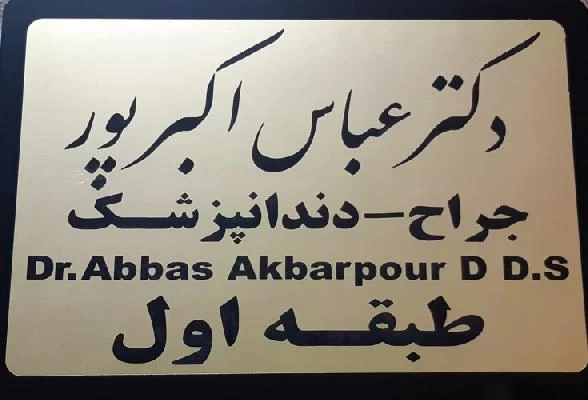 دکتر عباس اکبرپور
جراح-دندانپزشک
Dr.Abbas Akbarpour D D.S
طبقه اول